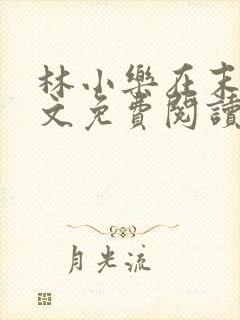 林小樂在末
文免費閱讀
月光流